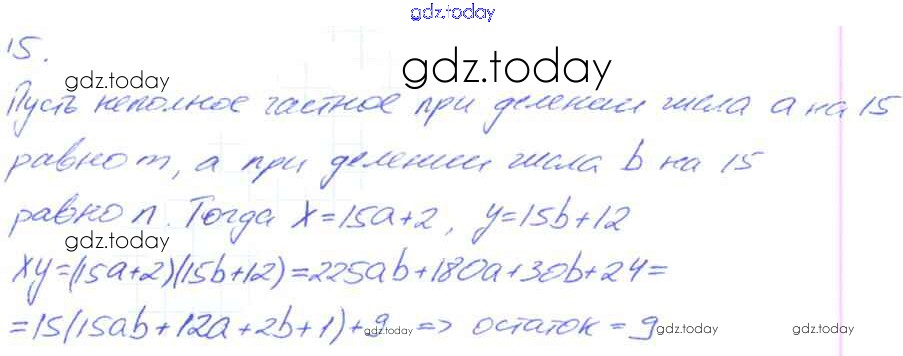 gdz.today
15.
gdz.today
gdz.today
Пусть неполное частное при делении числа a на 15
равно m, а при делении числа b на 15
равно n. Тогда x=15a+2, y=15b+12
gdz.today
xy=(15a+2)(15b+12)=225ab+180a+30b+24=
=15(15ab+12a+2b+1)+9 => остаток = 9
gdz.today gdz.today gdz.today